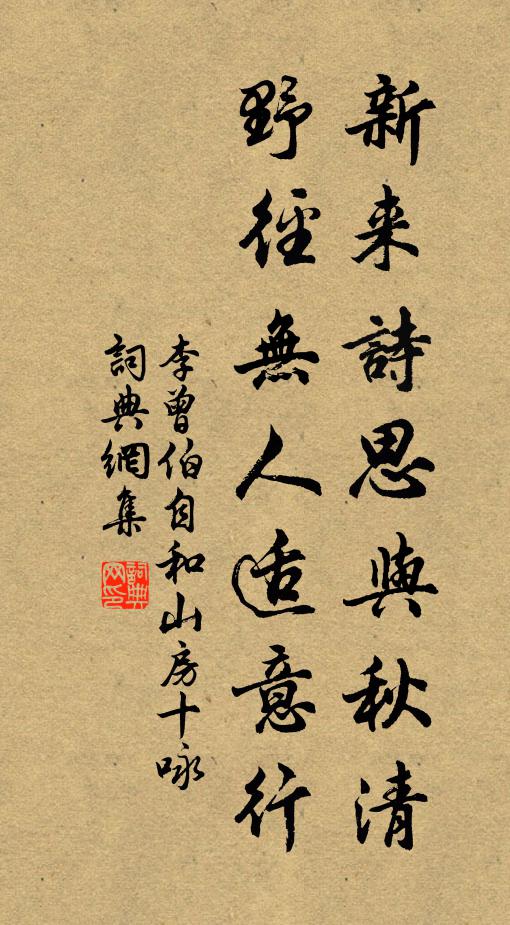 新来詩思與秋清
野徑無人适意行
李曾伯自和山房十咏
詞典網集
詞典
网印